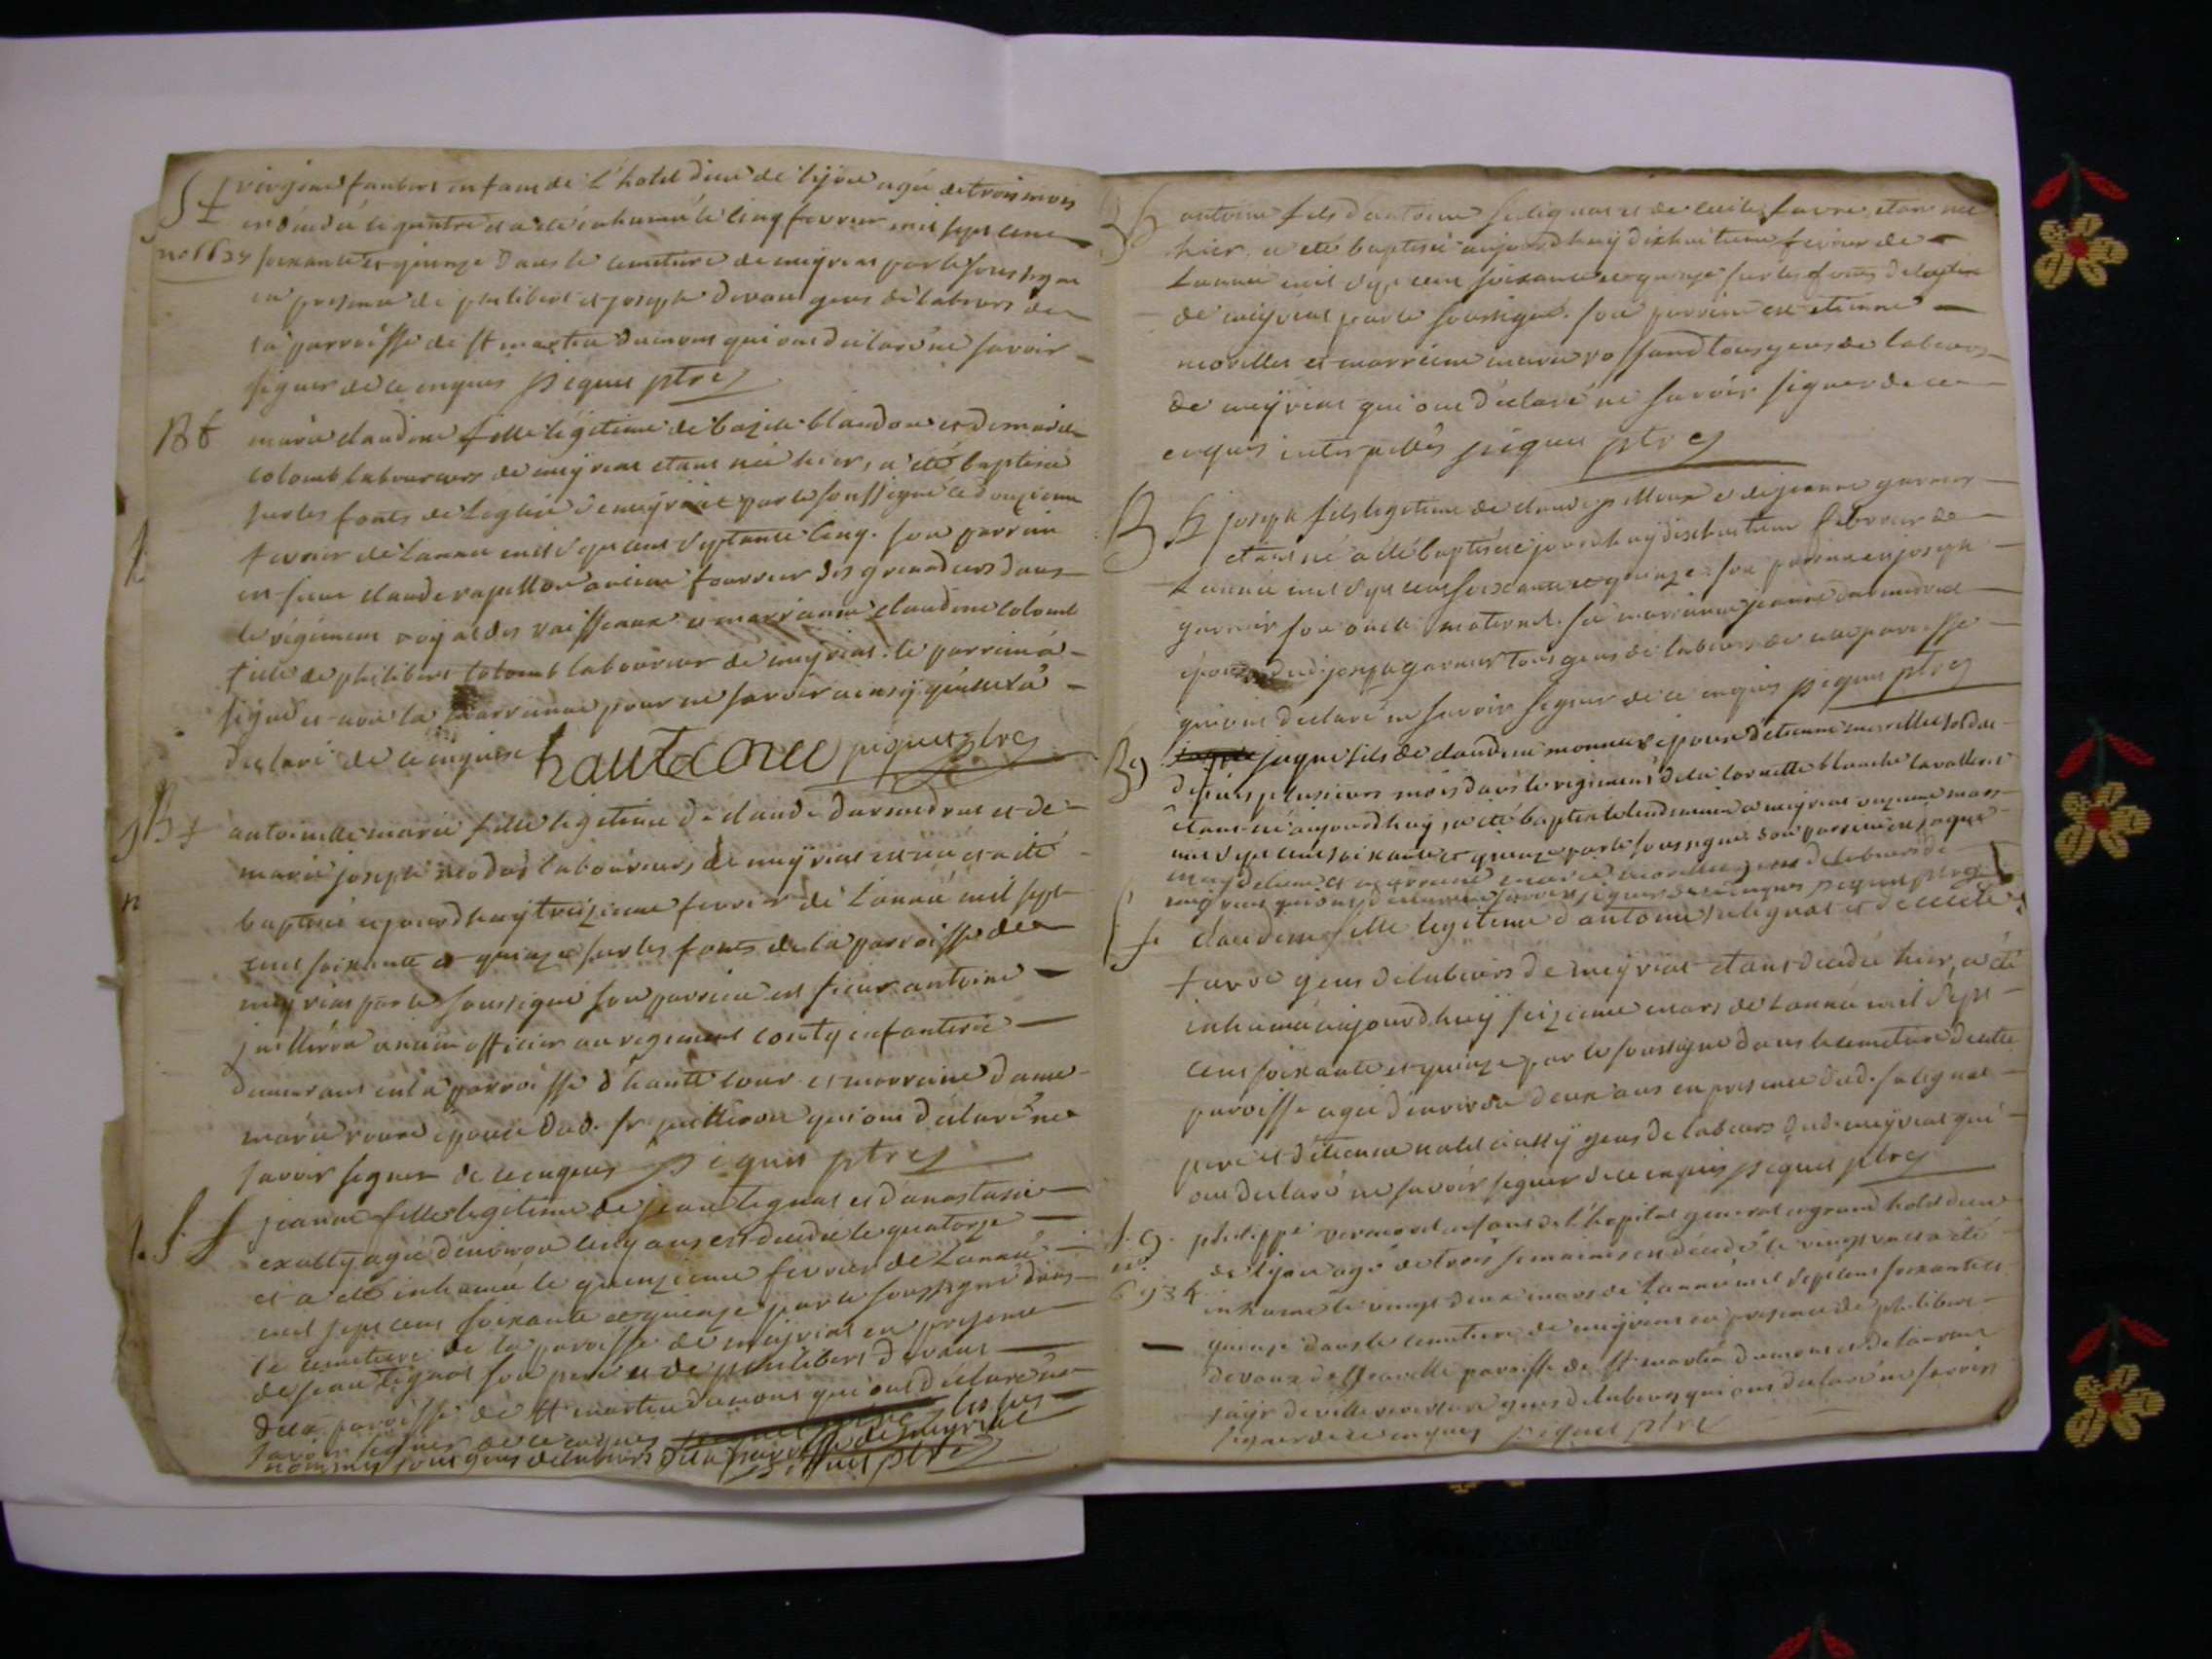 virgine faubert enfant de l'hotel dieu de lyon agée de trois mois
est décédée le quatre et a été inhumé le cinq fevrier mil sept cent
no 1627 soixante et quinze dans le cimetiere de meyriat par le soussigné
en presence de philibert et joseph devaux gens de labeurs de
la parroisse de st martin dumont qui ont declaré ne savoir
signer de ce enquis piquet ptre
Bf marie claudine fille légitime de bazile blandon et de marie
colomb laboureurs de meyriat etant née hier, a été baptisée
sur les fonts de l'eglise de meyriat par le soussigné le douzieme
fevrier de l'année mil sept cent septante cinq. son parrain
est sieur claude rapillon ancien fourrier des grenadiers dans
le régiment royal des vaisseaux et marrainne claudine colomb
fille de philibert colomb laboureur de meyriat. le parrain a
signé et non la marrainne pour ne savoir ainsy qu'elle l'a
declaré de ce enquise hautecour piquet ptre
Bf antoinette marie fille légitime de claude darmedrut et de
marie joseph laboureurs de meyriat est née et a été
baptisée aujourdhuy treizieme fevrier de l'année mil sept
cent soixante et quinze sur les fonts de la parroisse de
meyriat par le soussigné son parrain est sieur antoine
juilleron ancien officier au regiment conty infanterie
demeurant en la parroisse d'hautecour et marraine dame
marie epouse dud. sr juilleron qui ont déclaré ne
savoir signer de ce enquis piquet ptre
S f jeanne fille légitime de jean lignat et d'anastasie
agée d'environ cinq ans est decedée le quatorze
et a été inhumée le quinzieme fevrier de l'année
mil sept cent soixante et quinze par le soussigné dans
le cimetiere de la paroisse de meyriat en presence
de jean lignat son pere et de philibert devaux
de la paroisse de st martin dumont qui ont déclaré ne
savoir signer de ce enquis les sus
nommés tous gens de labeurs de la parroisse de meyriat
piquet ptre
B g antoine fils d'antoine salignat et de cécile favre, etant né
hier, a été baptisé aujourdhuy dixhuitieme fevrier de
l'année mil sept cent soixante et quinze sur les fonts de l'eglise
de meyriat par le soussigné. son parrain est etienne
morellet et marraine marie rossand tous gens de labeurs
de meyriat qui ont déclaré ne savoir signer de ce
enquis interpellés piquet ptre
B g joseph fils legitime de claude pelloux et de jeanne garnier
etant né a été baptisé aujourdhuy dixhuitieme febvrier de
l'année mil sept cent soixante et quinze. son parrain est joseph
garnier son oncle maternel. sa marrainne jeanne darmedrut
epouse dudt joseph garnier tous gens de labeurs de cette paroisse
qui ont declaré ne savoir signer de ce enquis piquet ptre
Bg jaque fils de claudine monnier epouse d'etienne morellet soldat
depuis plusieurs mois dans le regiment de la cornette blanche cavallerie
etant né aujourdhuy, a été baptisé le lendemain a meyriat onzieme mars
mil sept cent soixante et quinze par le soussigné son parrain est jaque
et marraine marie morellet gens de labeurs de
meyriat qui ont declaré ne savoir signer de ce enquis piquet ptre
S f claudine fille legitime d'antoine salignat et de cecile
favre gens de labeurs de meyriat etant decedée hier, a été
inhumée aujourdhuy seizieme mars de l'année mil sept
cent soixante et quinze par le soussigné dans le cimetiere de cette
paroisse agée d'environ deux ans en presence dud. salignat
pere et d'etienne aussy gens de labeurs dud. meyriat qui
ont declaré ne savoir signer de ce enquis piquet ptre
S. g. philippe vermorel enfant de l'hopital general et grand hotel dieu
n° de lyon agé de trois semaines est décédé le vingt un et a été
6934 inhumé le vingt deux mars de l'année mil sept cent soixante et
quinze dans le cimetiere de meyriat en presence de philibert
devaux de paroisse de st martin dumont et de laurent
de villereversure gens de labeurs qui ont declaré ne savoir
signer de ce enquis piquet ptre